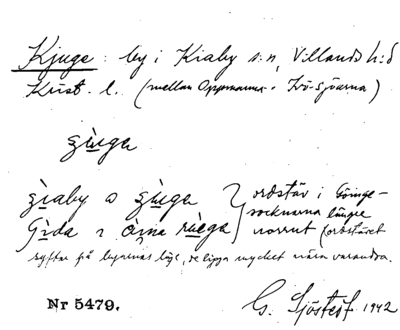 Kjuge : by i Kiaby s:n, Villands h:d
Krist. l. (mellan Oppmanna- o. Ivösjöarna)
ʒùga
ʒiaby o ʒùga } ordstäv i Göinge-
socknarna längre
Gìda o norrut (ordstävet
syftar på byarnas läge, de ligga mycket nära varandra.
Nr 5479.
G. Sjöstedt 1942